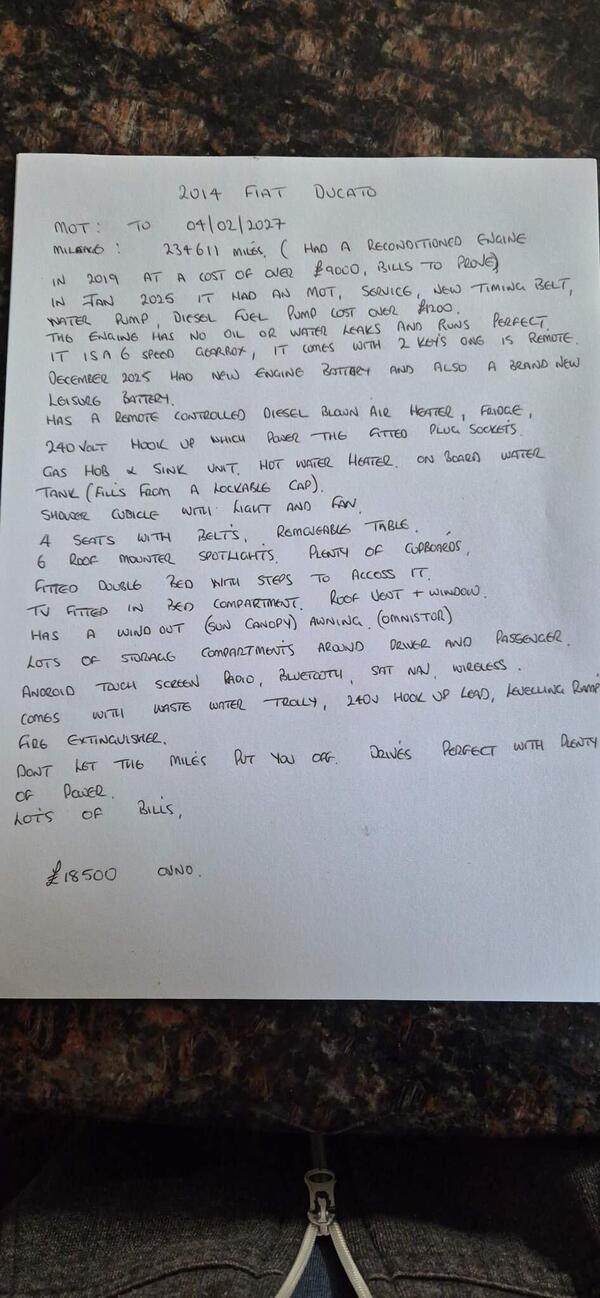 2014 FIAT DUCATO
MOT: TO 04/02/2027
MILEAGE: 234611 MILES. (HAD A RECONDITIONED ENGINE
IN 2019 AT A COST OF OVER £9000, BILLS TO PROVE)
IN JAN 2025 IT HAD AN MOT, SERVICE, NEW TIMING BELT,
WATER PUMP, DIESEL FUEL PUMP COST OVER £1200.
THE ENGINE HAS NO OIL OR WATER LEAKS AND RUNS PERFECT.
IT IS A 6 SPEED GEARBOX, IT COMES WITH 2 KEY'S ONE IS REMOTE.
DECEMBER 2025 HAD NEW ENGINE BATTERY AND ALSO A BRAND NEW
LEISURE BATTERY.
HAS A REMOTE CONTROLLED DIESEL BLOWN AIR HEATER, FRIDGE,
240 VOLT HOOK UP WHICH POWER THE FITTED PLUG SOCKETS.
GAS HOB & SINK UNIT. HOT WATER HEATER. ON BOARD WATER
TANK (FILLS FROM A LOCKABLE CAP).
SHOWER CUBICLE WITH LIGHT AND FAN.
4 SEATS WITH BELT'S, REMOVEABLE TABLE.
6 ROOF MOUNTER SPOTLIGHTS. PLENTY OF CUPBOARDS,
FITTED DOUBLE BED WITH STEPS TO ACCESS IT.
TV FITTED IN BED COMPARTMENT. ROOF VENT + WINDOW.
HAS A WIND OUT (SUN CANOPY) AWNING. (OMNISTOR)
LOTS OF STORAGE COMPARTMENTS AROUND DRIVER AND PASSENGER.
ANDROID TOUCH SCREEN RADIO, BLUETOOTH, SAT NAV, WIRELESS.
COMES WITH WASTE WATER TROLLY, 240V HOOK UP LEAD, LEVELLING RAMP
FIRE EXTINGUISHER.
DONT LET THE MILES PUT YOU OFF. DRIVES PERFECT WITH PLENTY
OF POWER.
LOT'S OF BILLS,
£18500 OVNO.